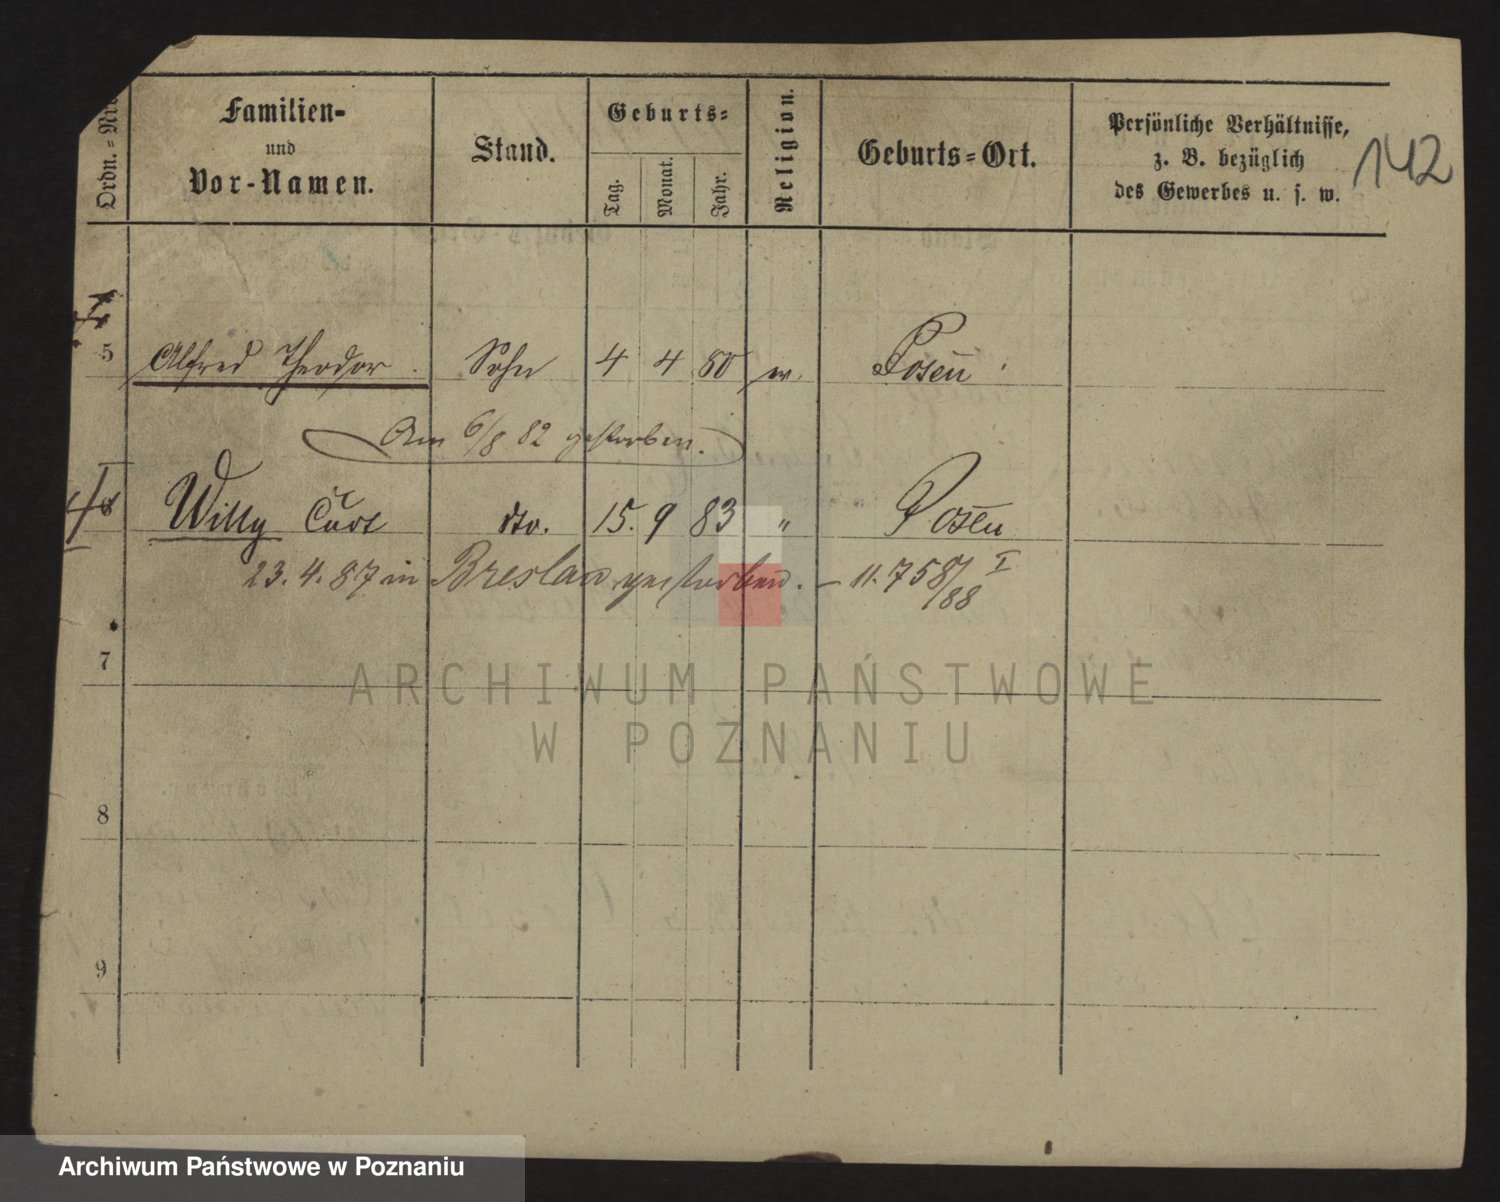 142
Ordn.=Nr.
Familien-
und
Vor-Namen.
Stand.
Geburts=
Tag.
Monat.
Jahr.
Religion.
Geburts=Ort.
Persönliche Verhältnisse,
z. B. bezüglich
des Gewerbes u. s. w.
5 Alfred Theodor. Sohn 4 4 80 Posen
Am 6/8 82 gestorben.
6 Willy Curt dto. 15. 9 83 " Posen
23. 4. 87 in Breslau gestorben. – 11. 758/88 I
7
8
9
ARCHIWUM PAŃSTWOWE
W POZNANIU
Archiwum Państwowe w Poznaniu